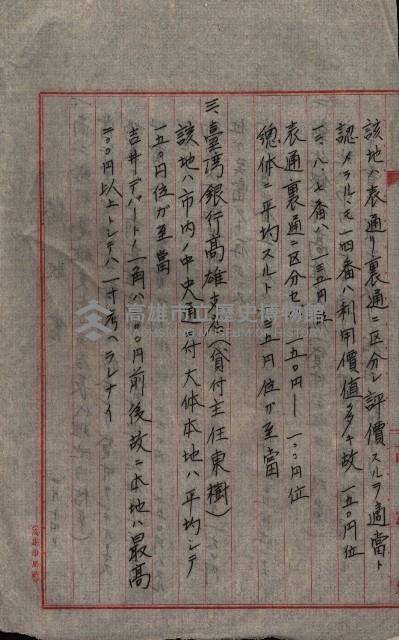 該地ハ表通リ裏通ニ区分シ評價スルヲ適當ト
認メラルヽモ一四番ハ利用價值多キ故一五〇円位
一三、八、七番ハ一三五円位
表通裏通ニ区分セバ一五〇円—一二〇円位
總体ニ平均スルト一三五円位ガ至當
三、臺湾銀行高雄支店(貸付主任東樹)
該地ハ市內ノ中央通ニ付大体本地ハ平均シテ
一五〇円位ガ至當
吉井デパートノ一角ハ二〇〇円前後故ニ本地ハ最高
二〇〇円以上トシテハ一寸考ヘラレナイ
高雄市立歷史博物館